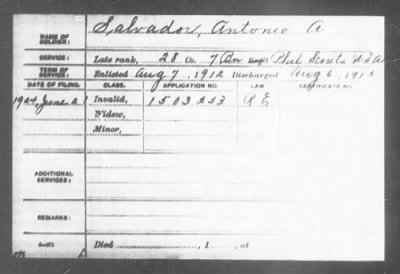 NAME OF SOLDIER: Salvador, Antonio A
SERVICE: Late rank, 28 Co. 7 Bn Reg't Phil Scouts U S A
TERM OF SERVICE: Enlisted Aug 7, 1912 Discharged Aug 6, 1915
DATE OF FILING. CLASS. APPLICATION NO. LAW CERTIFICATE NO.
1924, June 2 Invalid, 1503233 R E
Widow,
Minor,
ADDITIONAL SERVICES:
REMARKS:
Died , 1 , at